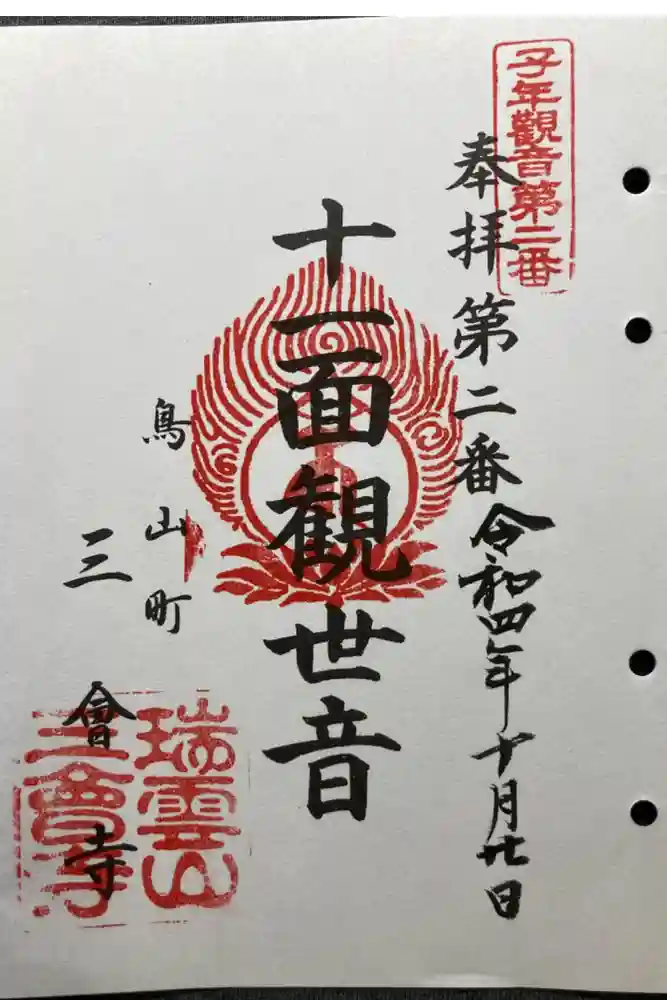 子年觀音第二番
奉拝第二番令和四年十月廿日
十一面観世音
烏山町
三會寺
瑞雲山
三會寺